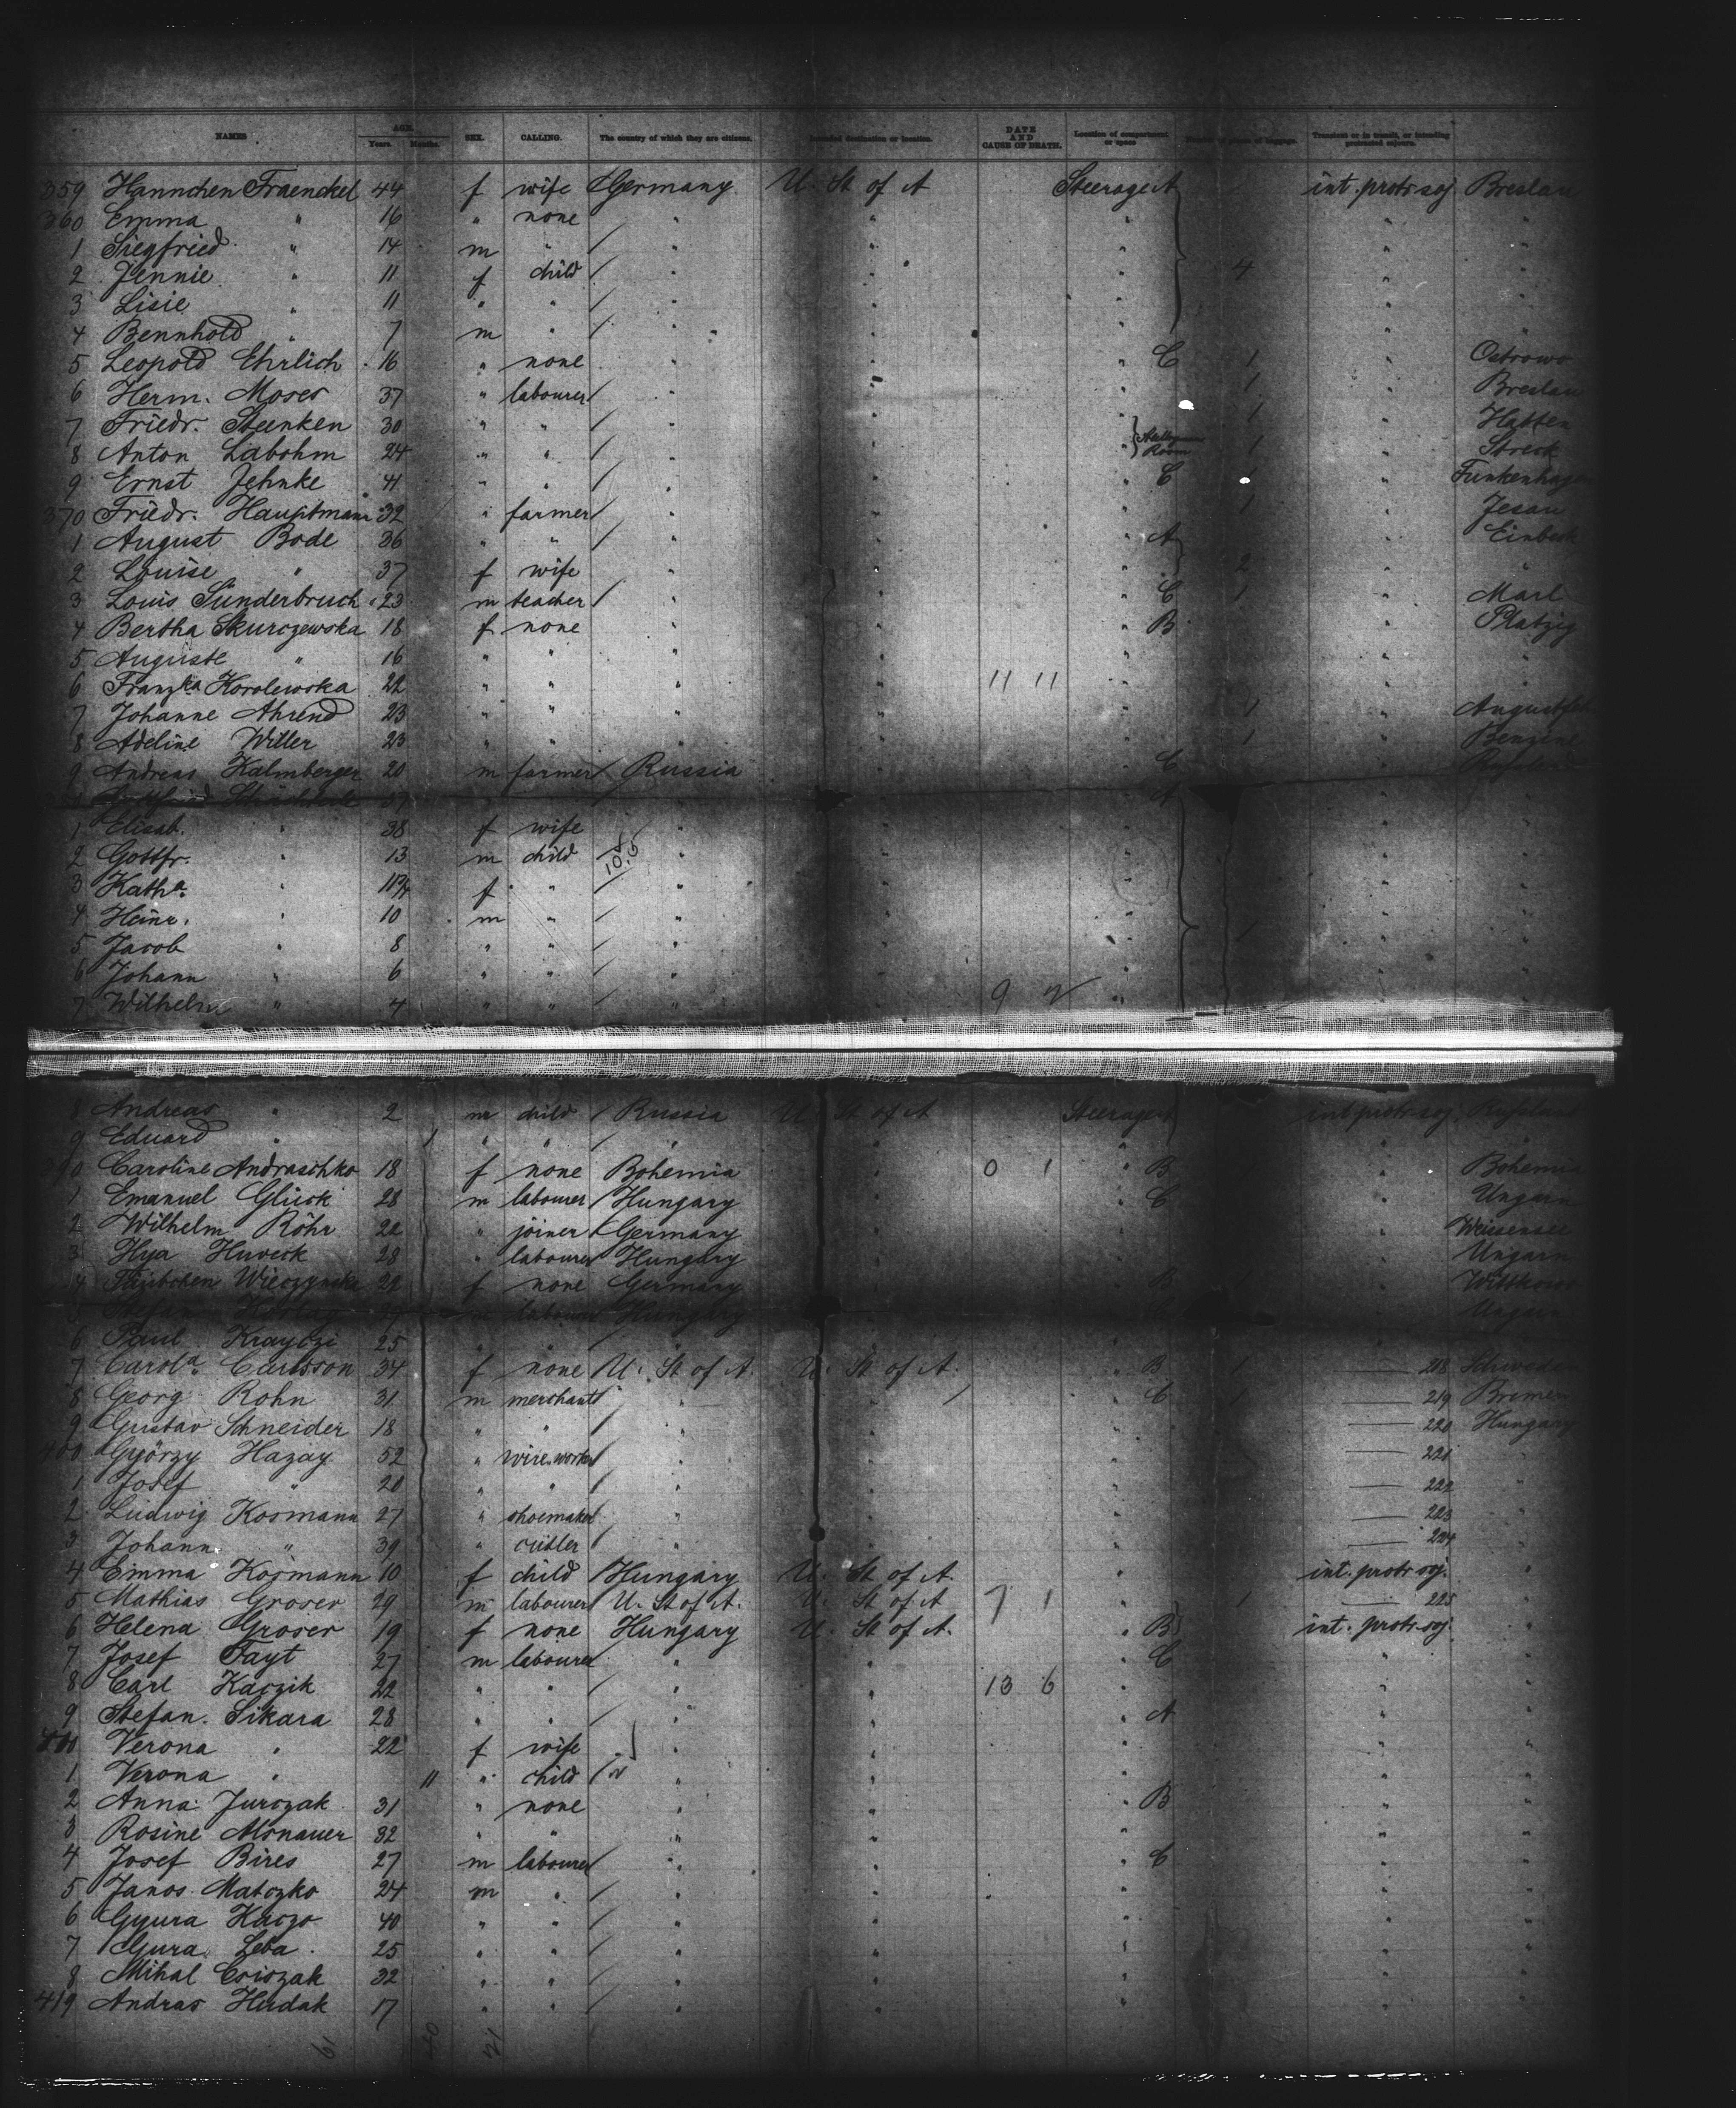 NAMES AGE. Years. Months. SEX. CALLING. The country of which they are citizens. Intended destination or location. DATE AND CAUSE OF DEATH. Location of compartment or space Number of pieces of baggage. Transient or in transit, or intending protracted sojourn.
359 Hannchen Fraenckel 44 f wife Germany U. St of A Steerage A int. protr. soj Breslau
360 Emma " 16 " none " " " " "
1 Siegfried " 14 m " " " " " "
2 Jennie " 11 f child " " " 4 " "
3 Lisie " 11 " " " " " " "
4 Bennhold " 7 m " " " " " "
5 Leopold Ehrlich 16 " none " " " C 1 " Ostrowo
6 Herm. Moses 37 " labourer " " " 1 " Breslau
7 Friedr. Steenken 30 " " " " 1 " Hatten
8 Anton Labohm 24 " " " " " Room 1 " Streek
9 Ernst Jehnke 41 " " " " " C " Funkenhagen
370 Friedr. Hauptmann 32 " farmer " " " 1 " Jesau
1 August Bode 36 " " " " " A " Einbeck
2 Louise " 37 f wife " " " 2 " "
3 Louis Sünderbruch 23 m teacher " " " C 1 " Marl
4 Bertha Skurczewska 18 f none " " " B " Platzig
5 Auguste " 16 " " " " " " "
6 Franzka Korolewska 22 " " " " 11 11 " " "
7 Johanne Ahrend 23 " " " " " 1 "
8 Adeline Willer 23 " " " " " 1 "
9 Andreas Kalmberger 20 m farmer Russia " " C "
37 A
1 Elisab. " 38 f wife " " " "
2 Gottfr. " 13 m child 10.5 " " " "
3 Katha. " 11 f " " " " "
4 Heinr. " 10 m " " " " "
5 Jacob " 8 " " " " " 1 "
6 Johann " 6 " " " " " "
7 Wilhelm " 4 " " " " 9 "
8 Andreas " 2 m child Russia U. St of A Steerage A int protr soj. Russland
9 Eduard " 1 " " " " " "
390 Caroline Andraschko 18 f none Bohemia " 0 1 " B " Bohemia
1 Emanuel Glück 28 m labourer Hungary " " C " Ungarn
2 Wilhelm Röhr 22 " joiner Germany " " " Weissensee
3 Ilya Huveck 28 " labourer Hungary " " " Ungarn
4 Wieczynska 22 f none Germany " " B "
5 Stefan m labourer Hungary " Ungarn
6 Paul Kraytzi 25 " " " " " "
7 Carola Carlsson 34 f none U. St of A. U. St of A. " B 218 Schweden
8 Georg Rohn 31 m merchant " " " C 219 Bremen
9 Gustav Schneider 18 " " " " " 220 Hungary
400 Györzy Hazay 52 " wire.worker " " " 221 "
1 Josef " 20 " " " " " 222 "
2 Ludwig Kosmann 27 " shoemaker " " " 223 "
3 Johann " 39 " cutler " " " 224 "
4 Emma Kosmann 10 f child Hungary U. St of A. " int. protr soj. "
5 Mathias Groser 29 m labourer U. St of A. U. St of A 7 1 " 1 225 "
6 Helena Groser 19 f none Hungary U. St of A. " B int. protr. soj "
7 Josef Fayt 27 m labourer " " " C " "
8 Carl Kaczik 22 " " " " 13 6 " " "
9 Stefan. Sikara 28 " " " " " A " "
410 Verona " 22 f wife " " " " "
1 Verona " 11 " child " " " " "
2 Anna Jurczak 31 " none " " " B " "
3 Rosine Monauer 32 " " " " " " "
4 Josef Bires 27 m labourer " " " C " "
5 Janos Matczko 24 m " " " " " "
6 Gyura Kaczo 40 " " " " " " "
7 Gura Leba 25 " " " " " " "
8 Mihal Csiszak 32 " " " " " " "
419 Andras Hudak 17 " " " " " " "